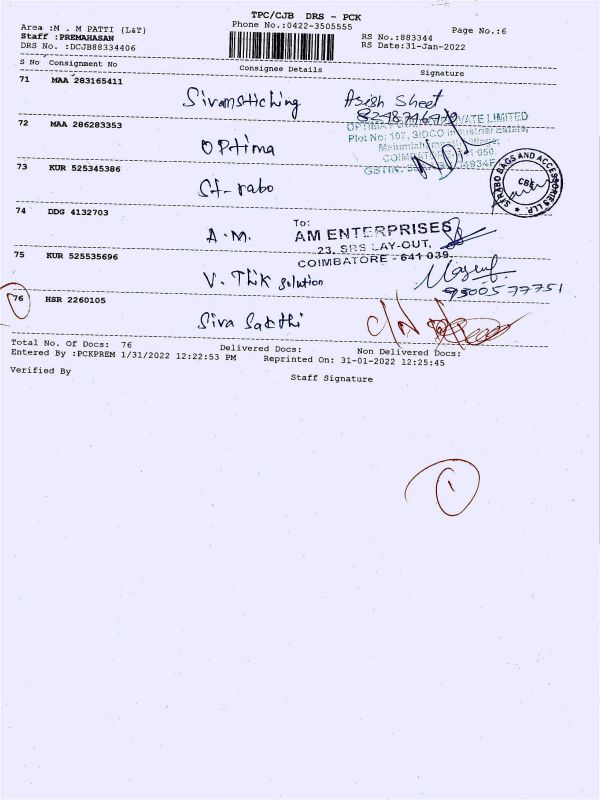 TPC/CJB DRS - PCK
Area :M . M PATTI (L&T) Phone No.:0422-3505555 Page No.:6
Staff :PREMAHASAN RS No.:883344
DRS No. :DCJB88334406 RS Date:31-Jan-2022
S No Consignment No Consignee Details Signature
71 MAA 283165411
Sivanstiching Asish Sheet
72 MAA 286283353
OPTIMA PRIVATE LIMITED
Plot No: 107, SIDCO Industrial Estate,
Optima
73 KUR 525345386
St-rabo
STRABO BAGS AND ACCESSORIES LLP.
CBE
74 DDG 4132703
To:
A.M. AM ENTERPRISES
23, SRS LAY-OUT,
COIMBATORE - 641 039.
75 KUR 525535696
V. Thik solution
9500577751
76 HSR 2260105
Siva Sakthi C/N
Total No. Of Docs: 76 Delivered Docs: Non Delivered Docs:
Entered By :PCKPREM 1/31/2022 12:22:53 PM Reprinted On: 31-01-2022 12:25:45
Verified By Staff Signature
1